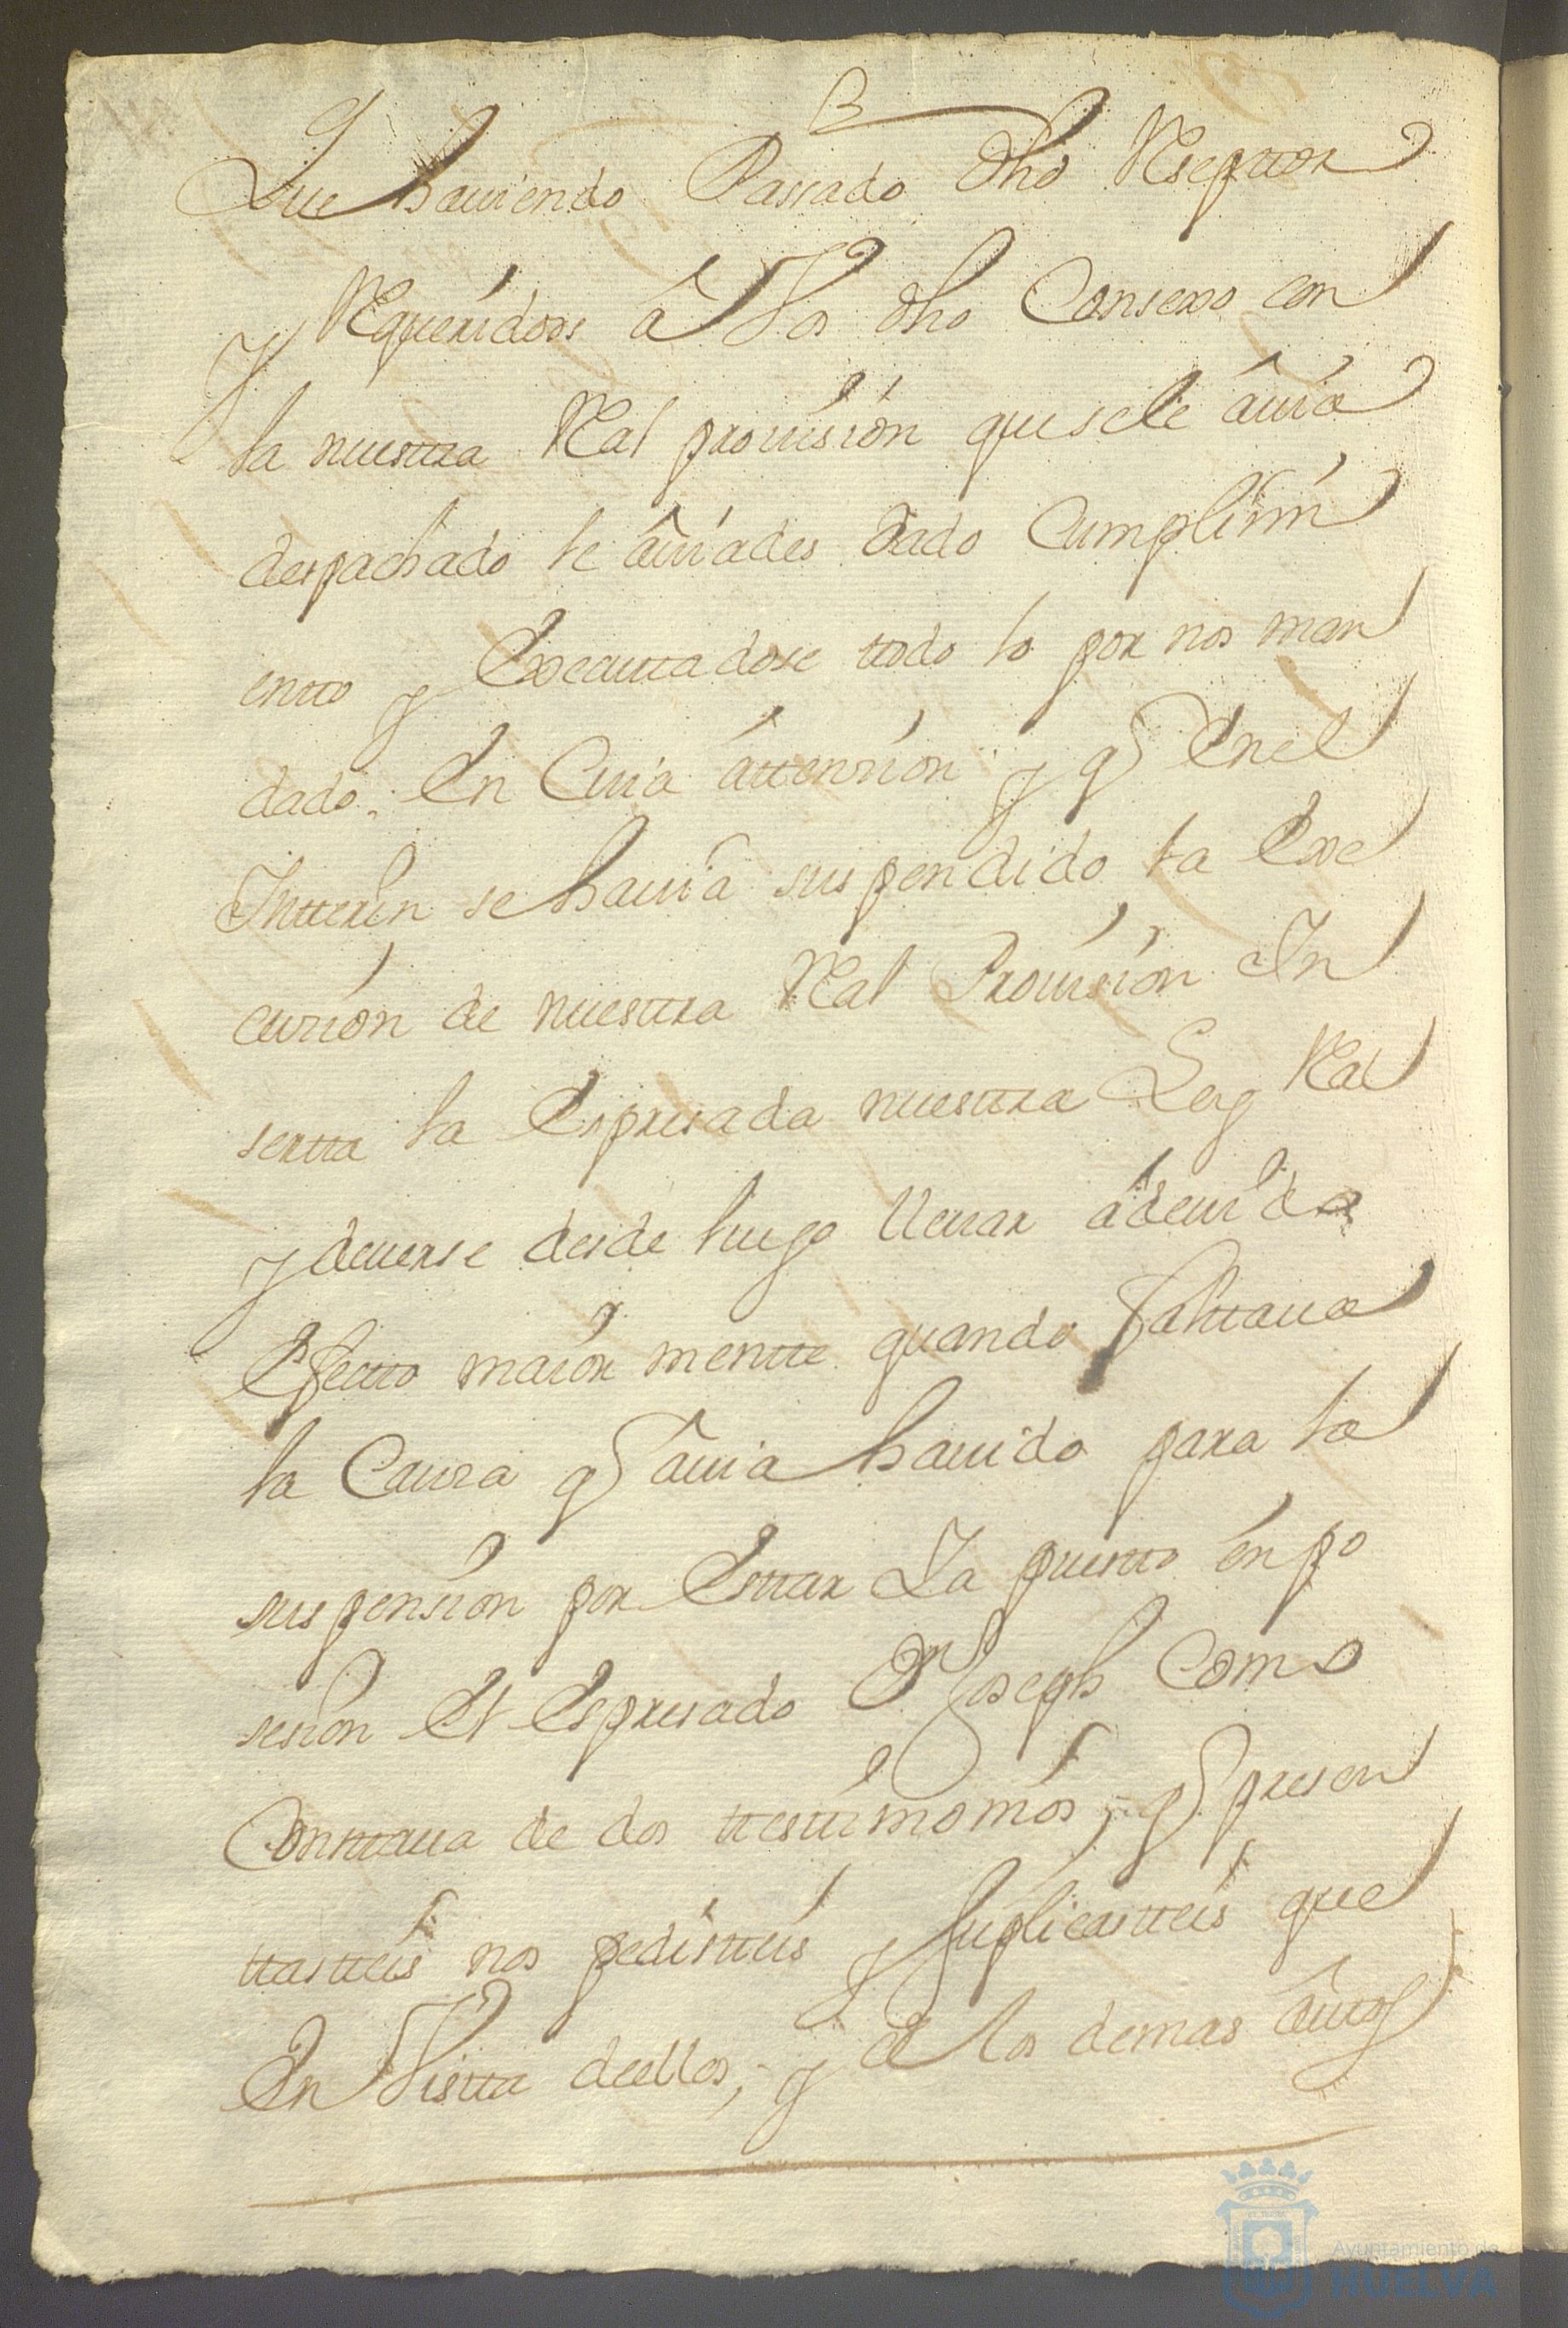 Que hauiendo Passado dho Rseptor
y Rqueridoos â Vos dho Consexo con
la nuestra Ral prouisión que se le âuia
despachado le âuiades dado Cumplimi
entto y Executtadose ttodo lo por nos man
dado; En Cuia âttenzion y q̃ Enel
Intterin se hauiâ suspendido la Exe
cuzion de nuestra Ral Prouision In
sertta la Espresada nuestra Ley Ral
y deuerse desde luego lleuar âdeuido
Efectto maiôr mentte quando faltaua
la Causa q̃ âuia hauido para la
suspension por Esttar Ya puestto ên po
sesion El Espresado Dn Joseph Como
Consttaua de dos ttesttimonios, q̃ presen
ttastteis nos pedistteis y suplicastteis que
En Vistta deellos, y de los demas âuttos
Ayuntamiento de
HUELVA